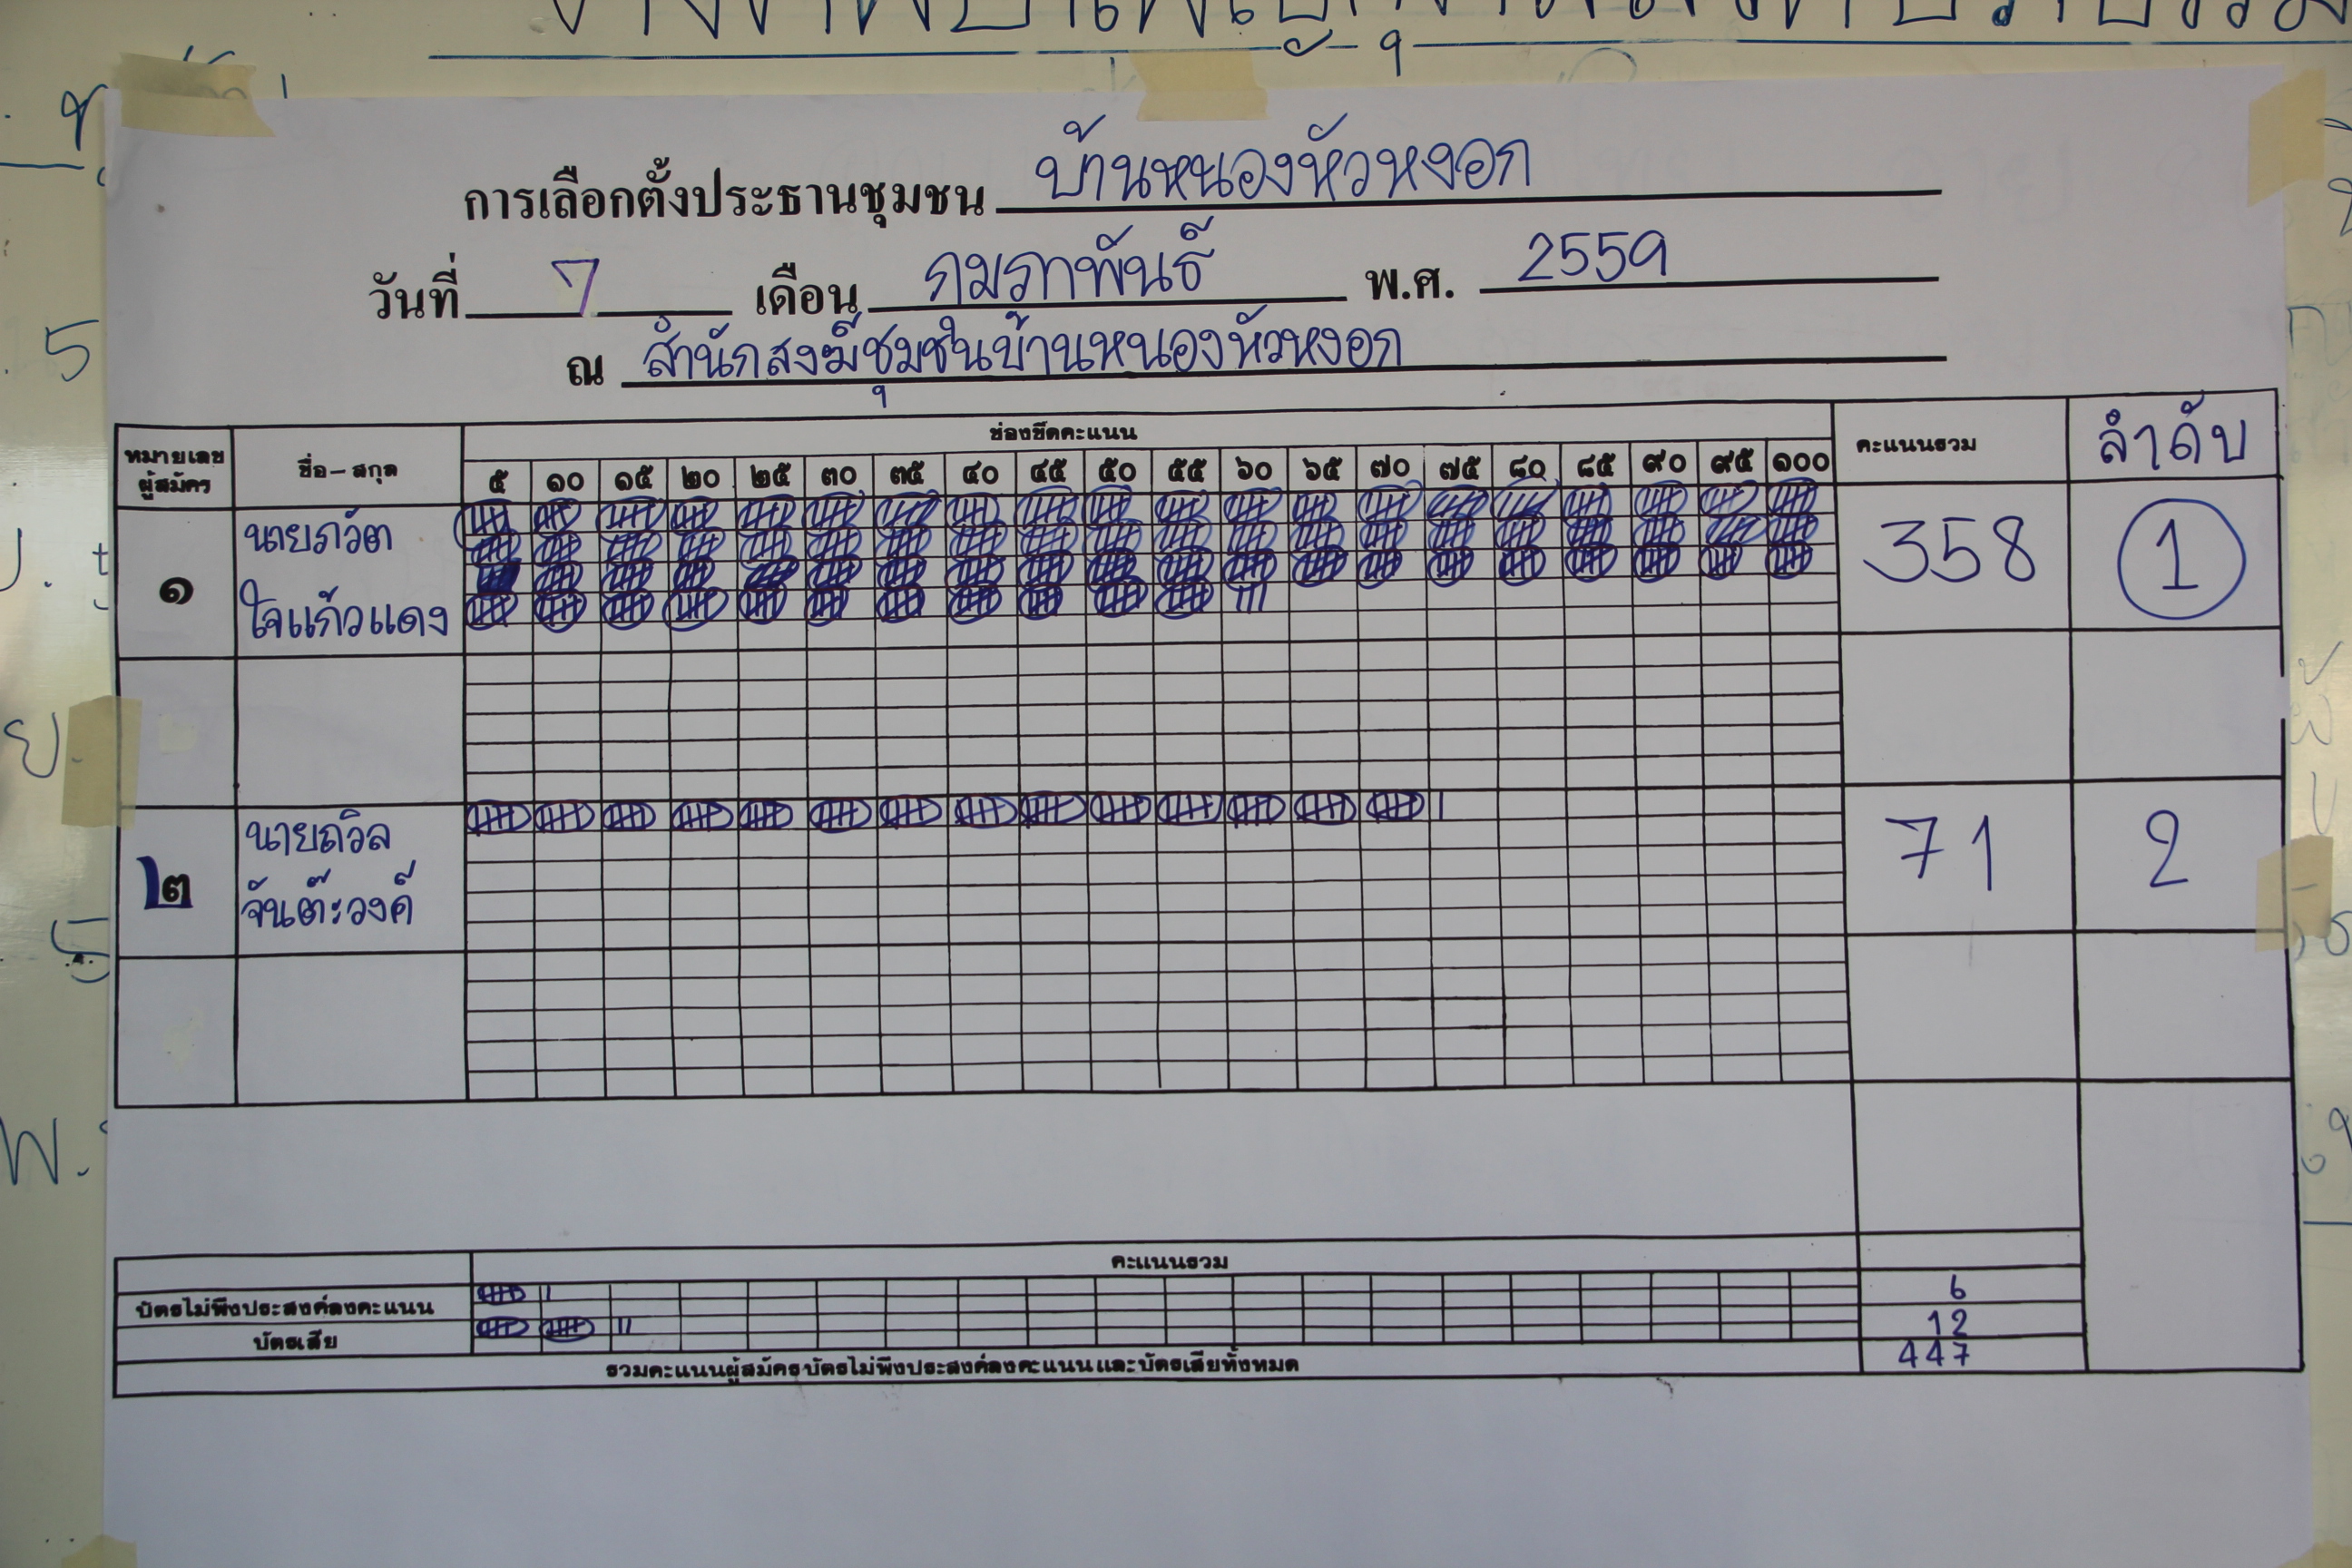 การเลือกตั้งประธานชุมชน บ้านหนองหัวหงอก
วันที่ 7 เดือน กุมภาพันธ์ พ.ศ. 2559
ณ สำนักสงฆ์ชุมชนบ้านหนองหัวหงอก
หมายเลขผู้สมัคร ชื่อ-สกุล ช่องขีดคะแนน คะแนนรวม ลำดับ
๕ ๑๐ ๑๕ ๒๐ ๒๕ ๓๐ ๓๕ ๔๐ ๔๕ ๕๐ ๕๕ ๖๐ ๖๕ ๗๐ ๗๕ ๘๐ ๘๕ ๙๐ ๙๕ ๑๐๐
๑ นายภวัต ใจแก้วแดง 358 1
๒ นายถวิล จันต๊ะวงค์ 71 2
คะแนนรวม
บัตรไม่พึงประสงค์ลงคะแนน 6
บัตรเสีย 12
รวมคะแนนผู้สมัครบัตรไม่พึงประสงค์ลงคะแนนและบัตรเสียทั้งหมด 447